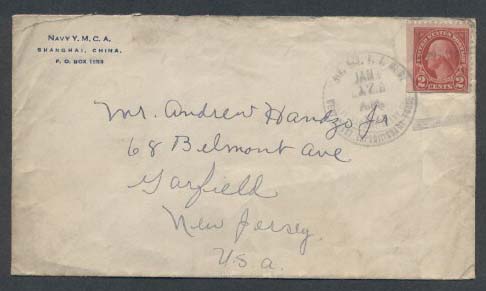 NAVY Y. M. C. A.
SHANGHAI, CHINA.
P. O. BOX
UNITED STATES POSTAGE
2 CENTS 2
JAN
Mr. Andrew Handzo Jr
68 Belmont ave
Garfield
New Jersey
U.S.a.